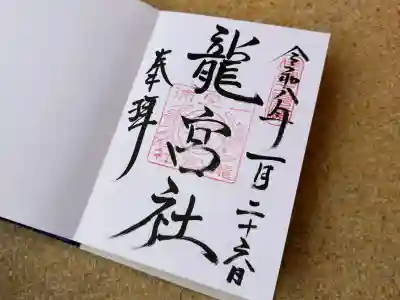 令和八年一月二十六日
龍宮社
奉拝